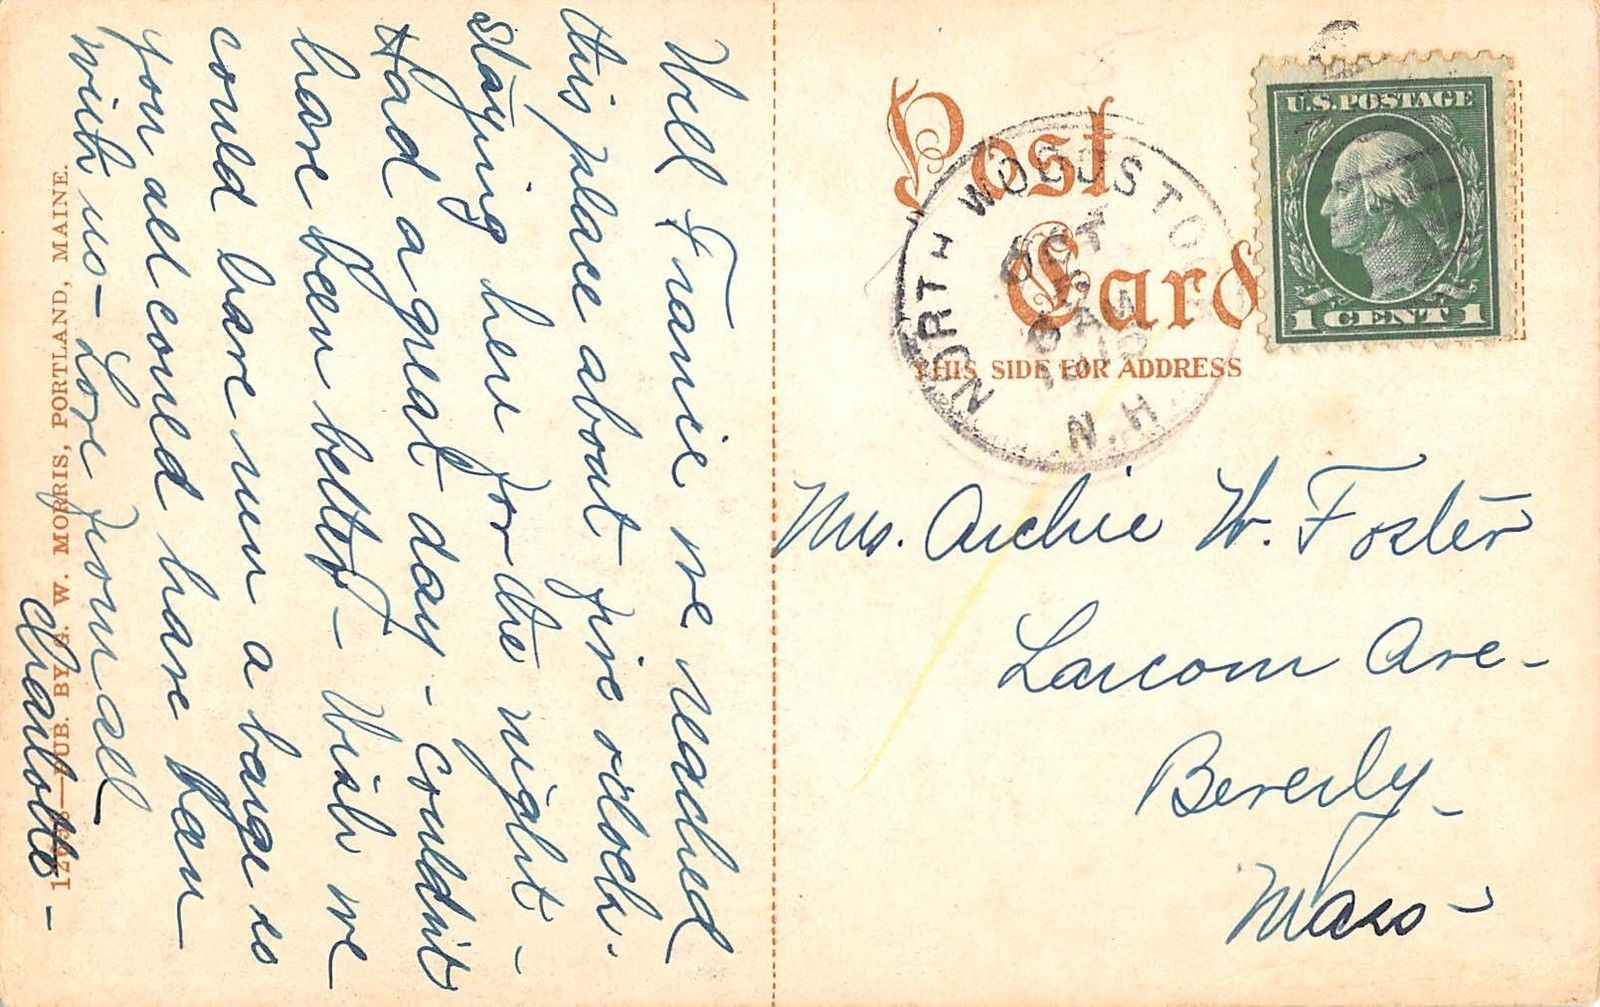 Well Francie we reached
this place about five oclock.
staying here for the night -
Had a great day - couldn't
have been better - Wish we
could have run a barge so
you all could have been
with us - Love from all
Charlotte -
PUB. BY G. W. MORRIS, PORTLAND, MAINE.
Post
Card
THIS SIDE FOR ADDRESS
NORTH WOODSTOCK
OCT
6
AM
N.H.
U.S. POSTAGE
1 CENT 1
Mrs. Archie W. Foster
Larcom Ave -
Beverly -
Mass -